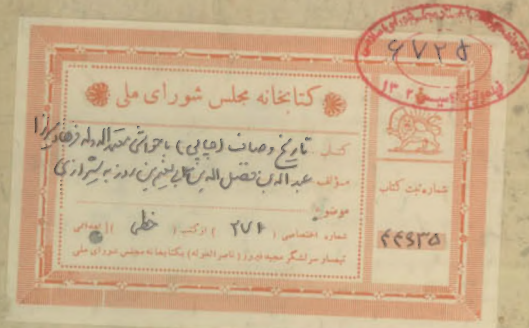 ۶۷۲۵
۱۳۰۲
کتابخانه مجلس شورای ملی
کتاب تاریخ وصاف (چاپی) با حواشی معتمدالدوله فرهاد میرزا
مؤلف عبدالله بن فضل الله بن ابی نعیم بن روزبه شیرازی
موضوع
شماره اختصاصی ( ۲۷۱ ) از کتب ( خطی ) اهدائی
تیمسار سرلشکر مجید فیروز (ناصرالدوله) بکتابخانه مجلس شورای ملی
شماره ثبت کتاب
۴۴۶۳۵